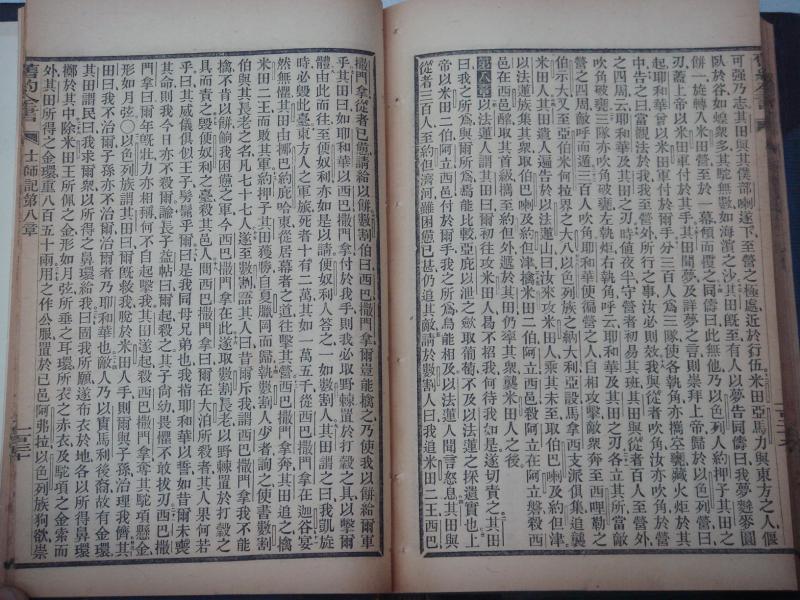 可强乃志其田與其僕部喇遂下至營之極處近於行伍米田亞馬力與東方之人偃
臥於谷如蝗衆多其駝無數如海濱之沙其田旣至有人以夢告同儔曰我夢麰麥圓
餅一旋轉入米田營至於一幕傾而覆之同儔曰此無他乃以色列人約押子其田之
刃蓋上帝以米田軍付於其手其田聞夢及詳夢之言則崇拜上帝歸於以色列營曰
起耶和華曾以米田軍付於爾手分三百人爲三隊使各執角亦攜空甕藏火炬於其
中告之曰當觀法於我我至營外所行之事汝必則效我與從者吹角汝亦吹角於營
之四周云耶和華及其田之刃時値夜半守營者初易其班其田與從者百人至營外
吹角破甕三隊亦吹角破甕左執炬右執角呼云耶和華及其田之刃各立其所當敵
營之四周敵呼而遁三百人吹角耶和華使徧營之人自相攻擊敵衆奔至西哩勒之
伯示大又至亞伯米何拉界之大八以色列族之納大利亞設馬拿西支派俱集追襲
米田人其田遣人遍告於以法蓮山曰汝來攻米田人乘其未至取伯巴喇及約但津
以法蓮族集其衆取伯巴喇及約但津擒米田二伯阿立西邑殺阿立在阿立磐殺西
邑在西邑醡取其首級攜至約但外遞於其田仍率其衆襲米田人之後
第八章以法蓮人謂其田曰爾初往攻米田人曷不招我何待我如是遂切責之其田
曰我之所爲與爾所爲曷能比較亞庇以泄之斂取葡萄不及以法蓮之採遺實也上
帝以米田二伯阿立西邑付於爾手我之所爲烏能相及以法蓮人聞言怒息其田與
從者三百人至約但濟河雖困憊已甚仍追其敵請於數割人曰我追米田二王西巴
舊約全書
士師記第八章
撒門拿從者已憊請給以餅數割伯曰西巴撒門拿爾豈能擒之乃使我以餅給爾軍
乎其田曰如耶和華以西巴撒門拿付於我手則我必取野棘置於打穀之具以擊爾
體由此而往至便奴利亦如是以請便奴利人答之一如數割人其田謂之曰我凱旋
時必毁此臺東方人之軍旅死者十有二萬其如一萬五千從西巴撒門拿在迦谷宴
然無懼其田由挪巴約庇哈東從居幕者之道往擊其營西巴撒門拿奔其田追之擒
米田二王而敗其軍約押子其田獲勝自夏臘岡而歸執數割人少者詢之使書數割
伯與其長老之名凡七十七人遂至數割語其人曰昔爾斥我謂西巴撒門拿我不能
擒不肯以餅餉我困憊之軍今西巴撒門拿在此遂取數割長老以野棘置於打穀之
具而責之毁便奴利之臺殺其邑人問西巴撒門拿曰爾在大泊所殺者其人果何若
乎曰其威儀俱似王子髣髴乎爾曰是我同母兄弟也我指耶和華以誓如昔爾未喪
其命則我今日亦不殺爾諭長子益帖曰爾起殺之其子尙幼畏懼不敢拔刃西巴撒
門拿曰爾年旣壯力亦相稱何不自起擊我其田遂起殺西巴撒門拿奪其駝項懸金
形如月弦〇以色列族謂其田曰爾旣救我脫於米田人手則爾與子孫治理我儕其
田曰我不治爾子孫亦不治爾治爾者乃耶和華也敵人乃以實馬利後裔故有金環
其田謂民曰我求爾衆以所得之鼻環給我曰固我所願遂布衣於地各以所得鼻環
擲於其中除米田王所佩之金形如月弦所垂之耳環所衣之赤衣及駝項之金索而
外其田所得之金環重八百五十兩用之作公服置於己邑阿弗拉以色列族狗欲崇